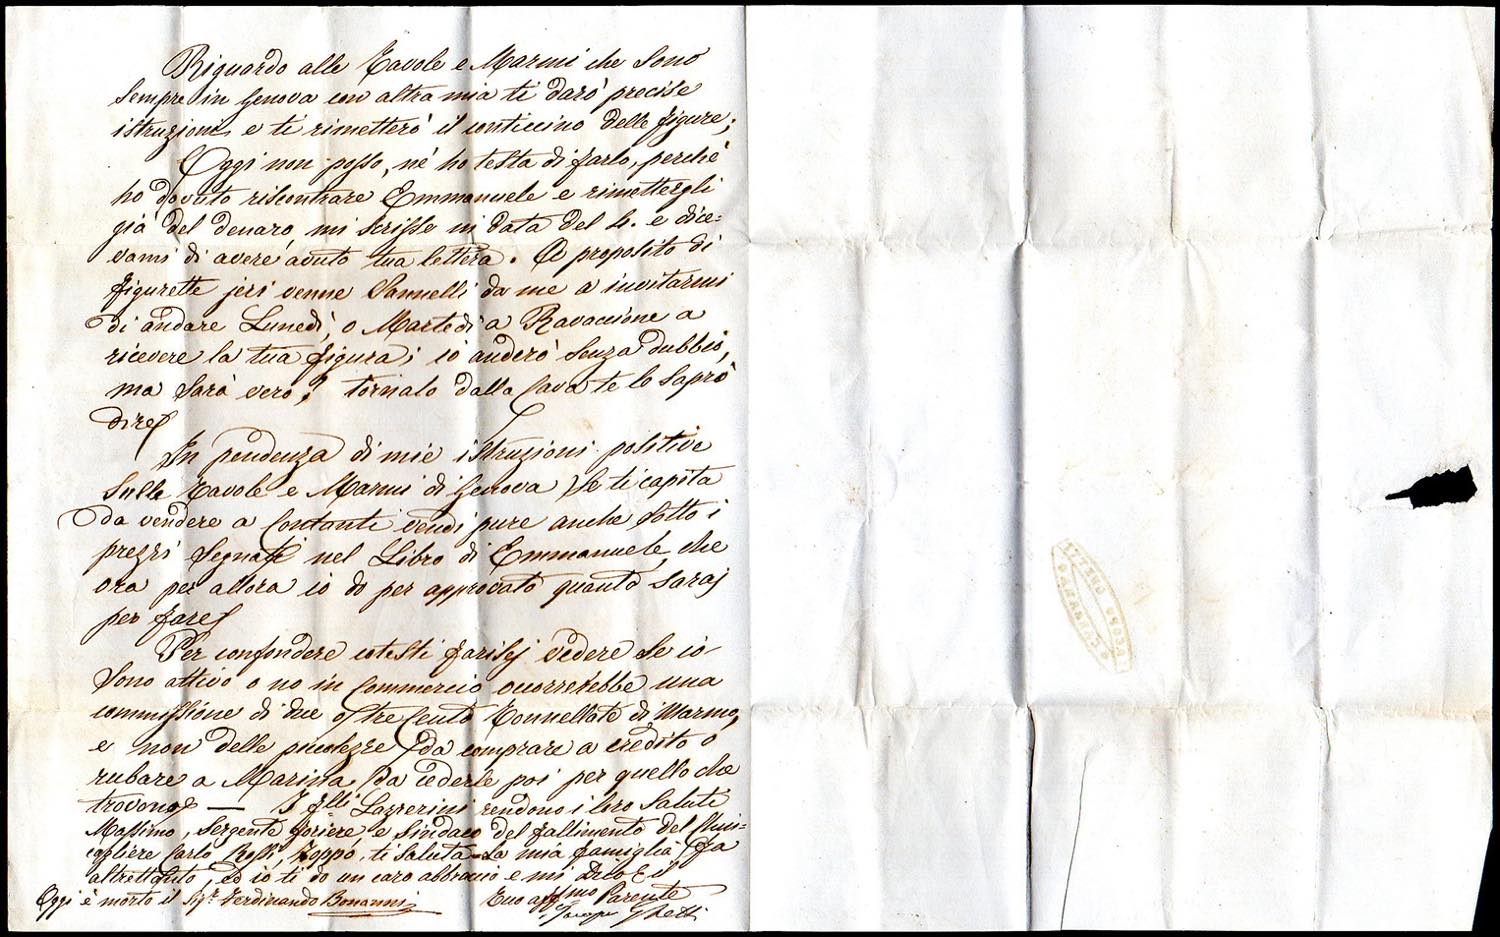 Riguardo alle Tavole e Marmi che sono
sempre in Genova con altra mia ti darò precise
istruzioni e ti rimetterò il conticino delle figure;
Oggi non posso, nè ho testa di farlo, perchè
ho dovuto riscontrare Emmanuele e rimettergli
già del denaro mi scrisse in data del 4. e dice=
vami di avere avuto tua lettera. A proposito di
figurette jeri venne Sannelli da me a invitarmi
di andare Lunedì, o Martedì a Ravaccione a
ricevere la tua figura; io anderò senza dubbio,
ma sarà vero? tornato dalla Cava te lo saprò
dire
In pendenza di mie istruzioni positive
sulle Tavole e Marmi di Genova se ti capita
da vendere a Contanti vendi pure anche sotto i
prezzi segnati nel Libro di Emmanuele, che
ora per allora io do per approvato quanto saraj
per fare
Per confondere cotesti farisej vedere se io
sono attivo o no in Commercio occorrerebbe una
commissione di due o tre Cento Tonnellate di Marmo,
e non delle piccolezze da comprare a credito o
rubare a Marina, da cederle poi per quello che
trovono — I flli Lazzerini rendono i loro saluti
Massimo, Sergente foriere e Sindaco del fallimento del Chin=
cagliere Carlo Rossi, Zoppo, ti saluta La mia famiglia fa
altrettanto, ed io ti do un caro abbraccio e mi dico il
Tuo affmo Parente
Ghetti
Oggi è morto il Sigr Ferdinando Bonanni
JACOPO GHETTI
CARRARA